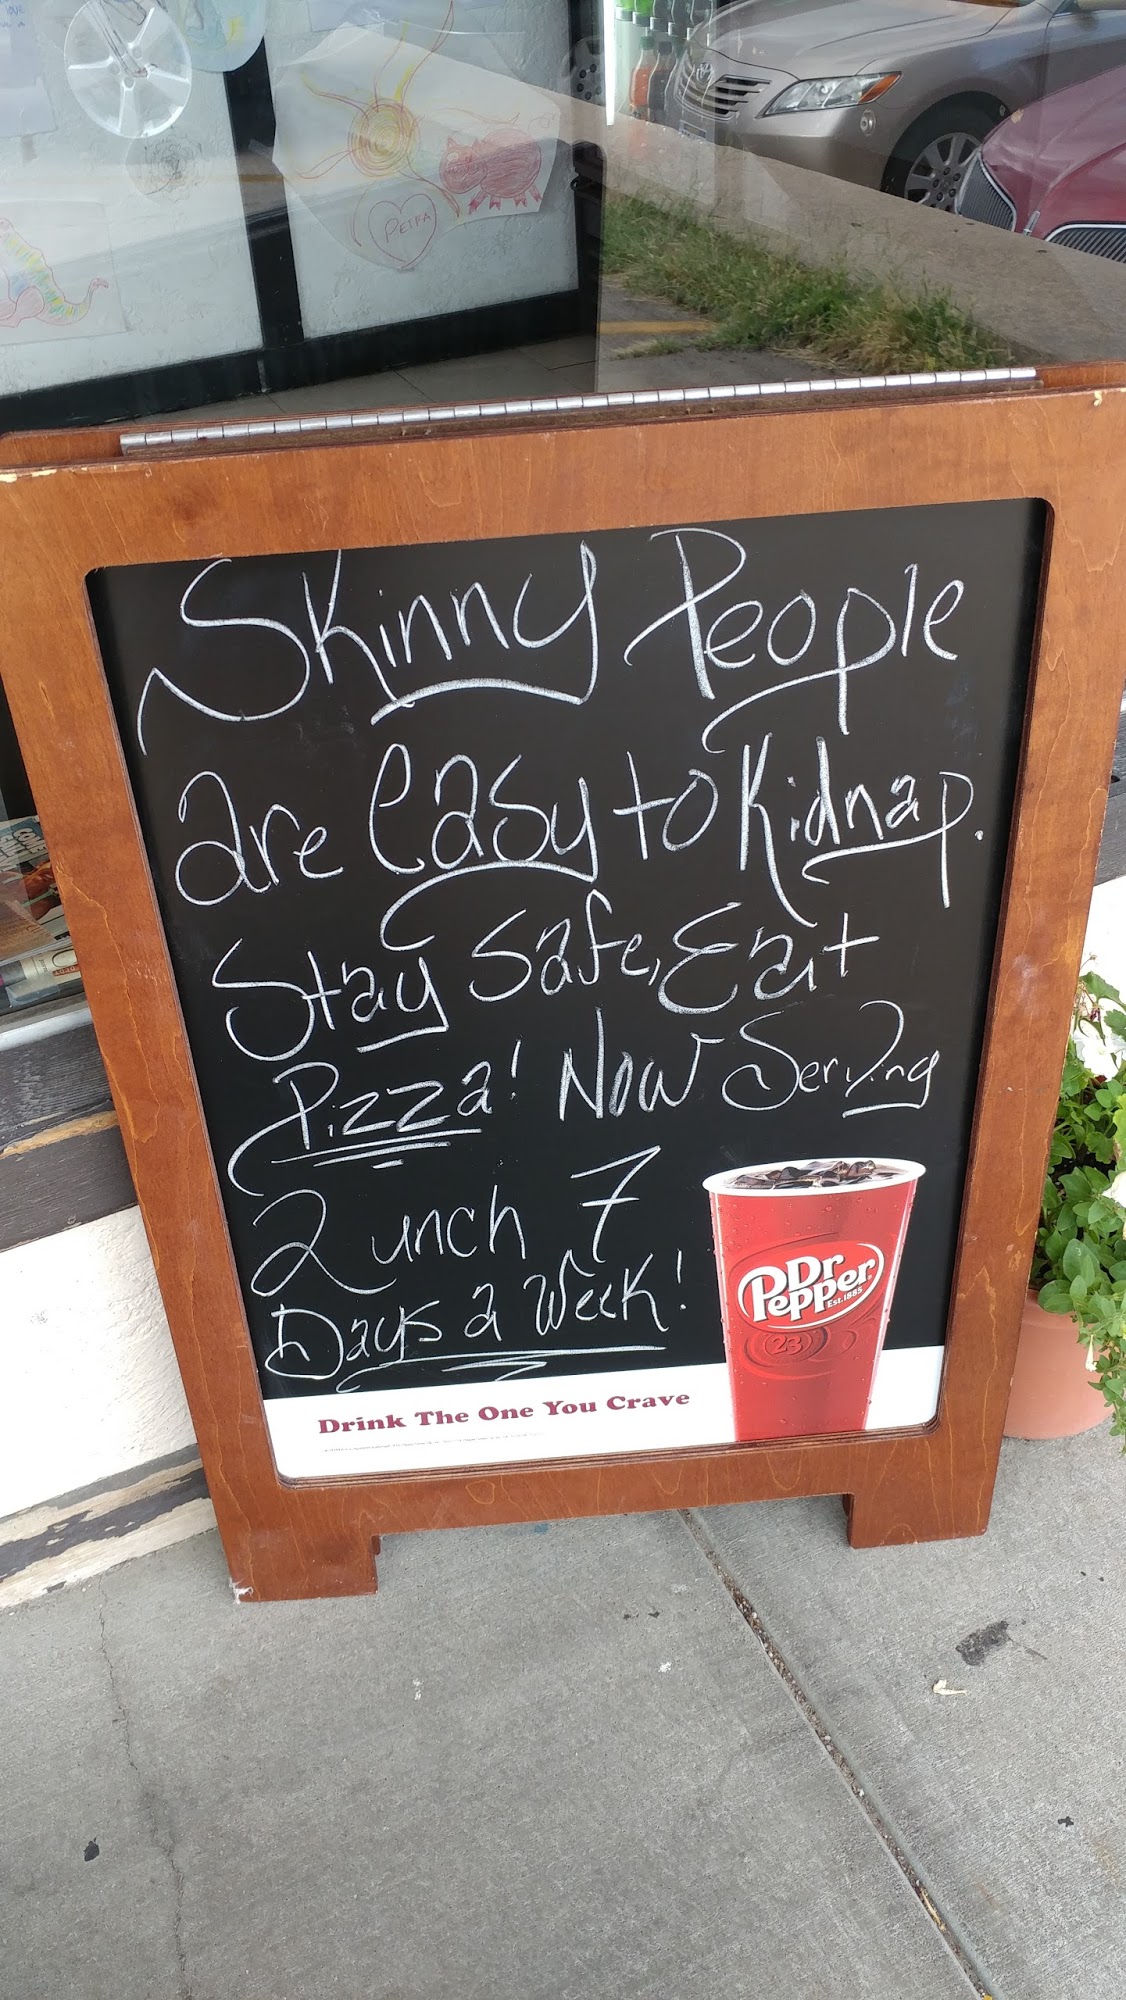 PETRA
Skinny People
are Easy to Kidnap.
Stay Safe, Eat
Pizza! Now Serving
Lunch 7
Days a Week!
Dr
Pepper
Est. 1885
23
Drink The One You Crave